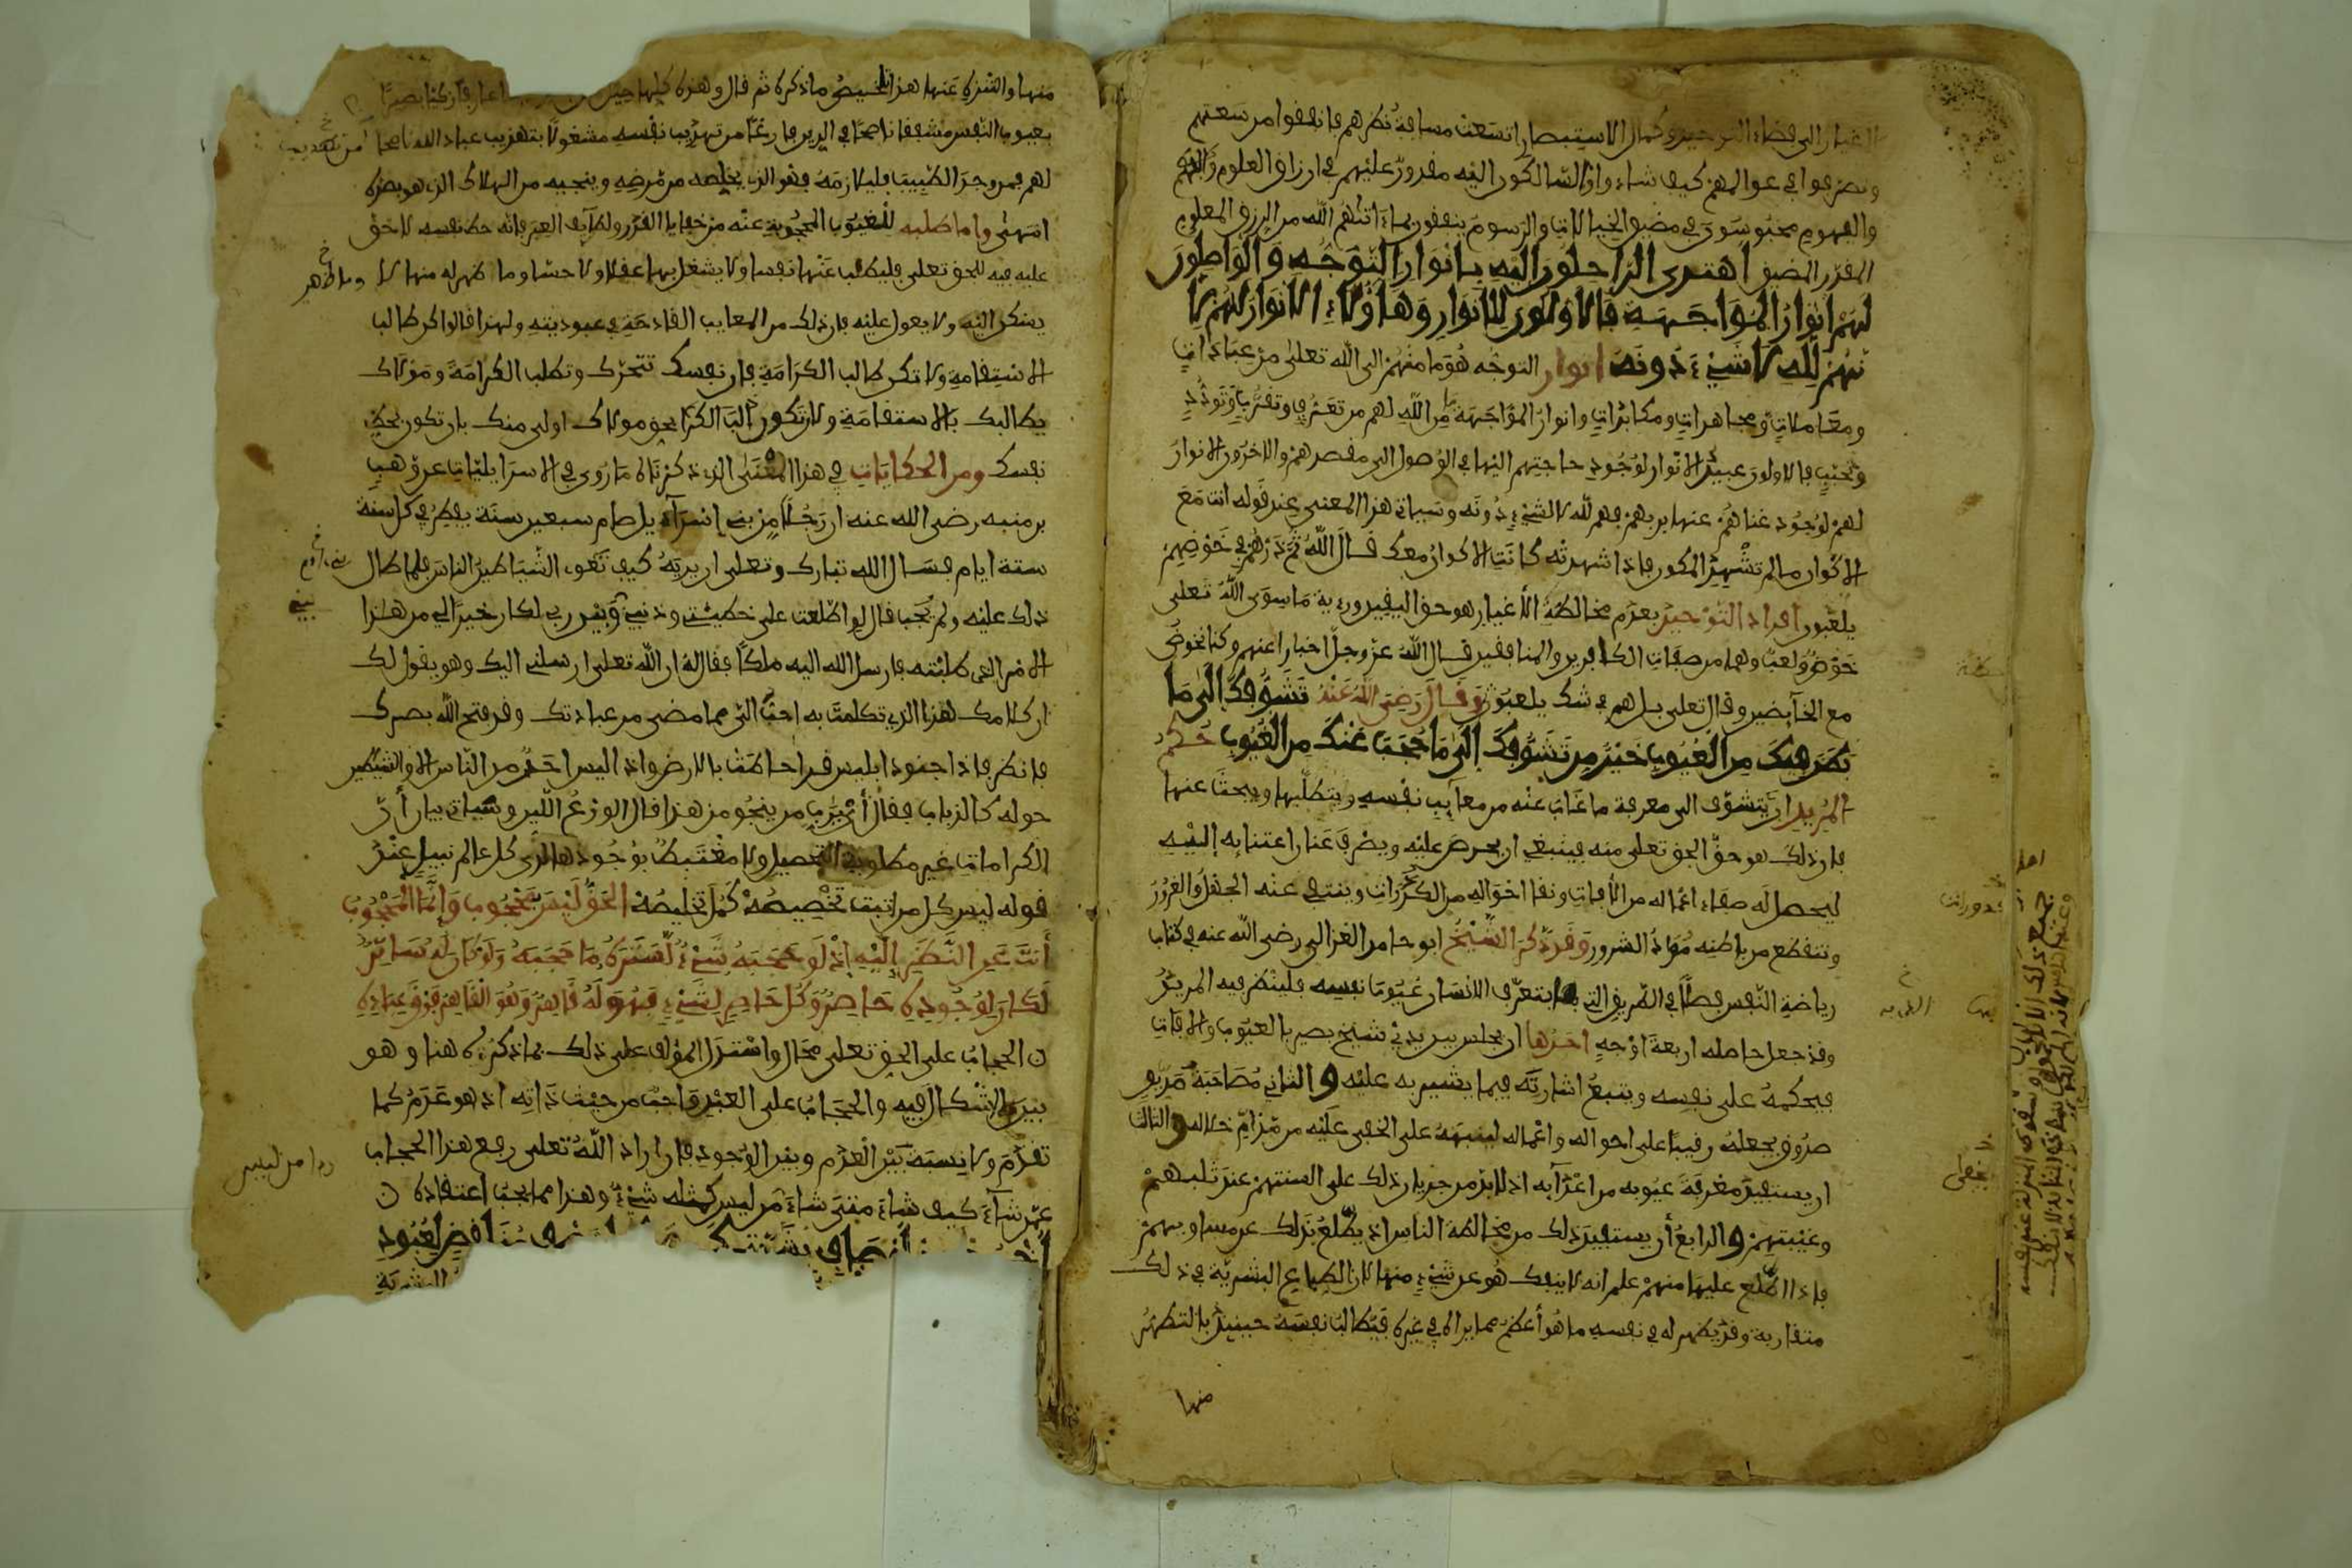 الاغيار الى فضاء التوحيد وكمال الاستبصار اتسعت مسافة نظرهم فانفقوا من سعتهم
وتصرفوا في عوالمهم كيف شاءوا والسالكون اليه مقدور عليهم في ارزاق العلوم
والفهوم محبوسون في مضيق الخيالات والرسوم ينفقون مما ءاتاهم الله من الرزق المعلوم
المقدر المضيق اهتدى الراحلون اليه بانوار التوجه والواصلون
لهم انوار المواجهة فالاولون للانوار وهاؤلاء الانوار لهم لا
نهم لله لا شيء دونه انوار التوجه هو ما منهم الى الله تعلى من عبادات
ومعاملات ومجاهدات ومكابدات وانوار المواجهة ما من الله لهم من تعرف وتقرب وتودد
وتحبب فالاولون عبيد الانوار لوجود حاجتهم اليها في الوصول الى مقصدهم والاخرون الانوار
لهم لوجود غناهم عنها بربهم فهم لله لا لشيء دونه وسياتي هذا المعنى عند قوله انت مع
الاكوان ما لم تشهد المكون فاذا شهدته كانت الاكوان معك قال الله ثم ذرهم في خوضهم
يلعبون افراد التوحيد بعدم مخالطة الاغيار هو حق اليقين ورءية ما سوى الله تعلى
خوض ولعب وهما من صفات الكافرين والمنافقين قال الله عز وجل اخبارا عنهم وكنا نخوض
مع الخائضين وقال تعلى بل هم في شك يلعبون وقال رضي الله عنه تشوفك الى ما
بطن فيك من العيوب خير من تشوفك الى ما حجب عنك من الغيوب حكم
المريد ان يتشوف الى معرفة ما غاب عنه من معايب نفسه ويتطلبها ويبحث عنها
فان ذلك هو حق الحق تعلى منه فينبغي ان يحرص عليه ويصرف عنان اعتنايه اليه
ليحصل له صفاء اعماله من الافات ونقا احواله من الكدرات وينتفي عنه الجهل والغرور
وتنقطع من باطنه مواد الشرور وقد ذكر الشيخ ابو حامد الغزالي رضي الله عنه في كتاب
رياضة النفس فصلا في الطريق التي بها يتعرف الانسان عيوب نفسه فلينظر فيه المريد
وقد جعل حاصله اربعة اوجه احدها ان يجلس بين يدي شيخ بصير بالعيوب والافات
فيحكمه على نفسه ويتبع اشارته فيما يشير به عليه والثاني مصاحبة صديق
صدوق يجعله رقيبا على احواله واعماله لينبهه على الخفي عليه من مذام خلاله والثالث
ان يستفيد معرفة عيوبه من اعدايه اذ لا بد من جريان ذلك على السنتهم عند ثلبهم
وغيبتهم والرابع أن يستفيد ذلك من مخالطة الناس اذ يطلع بذلك عن مساويهم
فاذا اطلع عليها منهم علم انه لا ينفك هو عن شيء منها لان الطباع البشرية في ذلك
متقاربة وقد يظهر له في نفسه ما هو أعظم مما يراه في غيره فيطالب نفسه حينئذ بالتطهر
منها
منها والتنزه عنها هذا تلخيص ما ذكره ثم قال وهذه كلها حيل من عارفا زكيا بصيرا
بعيوب النفس مشفقا ناصحا في الدين فارغا من تهذيب نفسه مشغولا بتهذيب عباد الله ناصحا
لهم فمن وجد الطبيب فليلازمه فهو الذي يخلصه من مرضه وينجيه من الهلاك الذي هو بصدده
انتهى واما طلبه للغيوب المحجوبة عنه من خفايا القدر ولطايف العبر فانه حظ نفسه لا حق
عليه فيه للحق تعلى فليطب عنها نفسا ولا يشغل بها عقلا ولا حسا وما ظهر له منها لا
يسكن اليه ولا يعول عليه فان ذلك من المعايب القادحة في عبوديته ولهذا قالوا كن طالب
الاستقامة ولا تكن طالب الكرامة فان نفسك تتحرك وتطلب الكرامة ومولاك
يطالبك بالاستقامة ولان تكون بحق مولاك اولى منك بان تكون بحظ
نفسك ومن الحكايات في هذا المعنى الذي ذكرناه ما روي في الاسراييليات عن وهب
بن منبه رضي الله عنه ان رجلا من بني اسرآءيل صام سبعين سنة يفطر في كل سنة
ستة ايام فسال الله تبارك وتعلى ان يريه كيف تغوي الشياطين الناس فلما طال
ذلك عليه ولم يجب قال لو اطلعت على خطيئتي وذنبي وبين ربي لكان خيرا لي من هذا
الامر الذي طلبته فارسل الله اليه ملكا فقال له ان الله تعلى ارسلني اليك وهو يقول لك
ان كلامك هذا الذي تكلمت به احب الي مما مضى من عبادتك وقد فتح الله بصرك
فانظر فاذا جنود ابليس قد احاطت بالارض واذ ليس احد من الناس الا والشياطين
حوله كالذباب فقال أي رب من ينجو من هذا قال الورع اللين وسياتي بيان أن
الكرامات غير مطلوبة التحصيل ولا مغتبط بوجودها لدى كل عالم نبيل عند
قوله ليس كل من ثبت تخصيصه كمل تخليصه الحق ليس بمحجوب وإنما المحجوب
أنت عن النظر إليه إذ لو حجبه شيء لستره ما حجبه ولو كان له ساتر
لكان لوجوده حاصر وكل حاصر لشيء فهو له قاهر وهو القاهر فوق عباده
ن الحجاب على الحق تعلى محال واستدل المؤلف على ذلك بما ذكره هنا وهو
بين لا اشكال فيه والحجاب على العبد واجب من حيث ذاته اذ هو عدم كما
تقدم ولا نسبة بين العدم وبين الوجود فان اراد الله تعلى رفع هذا الحجاب
عمن شآء كيف شاء متى شاء من ليس كمثله شيء وهذا مما يجب اعتقاده ن